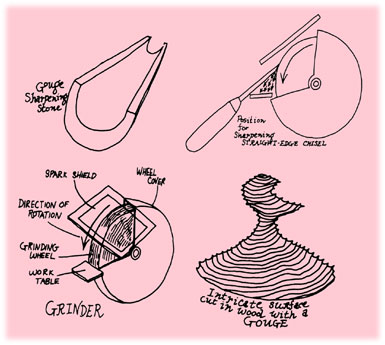 Gouge
Sharpening
Stone
Position
for
Sharpening
STRAIGHT-EDGE CHISEL
SPARK SHIELD
WHEEL
COVER
DIRECTION OF
ROTATION
GRINDING
WHEEL
WORK
TABLE
GRINDER
Intricate surface
cut in wood with a
GOUGE